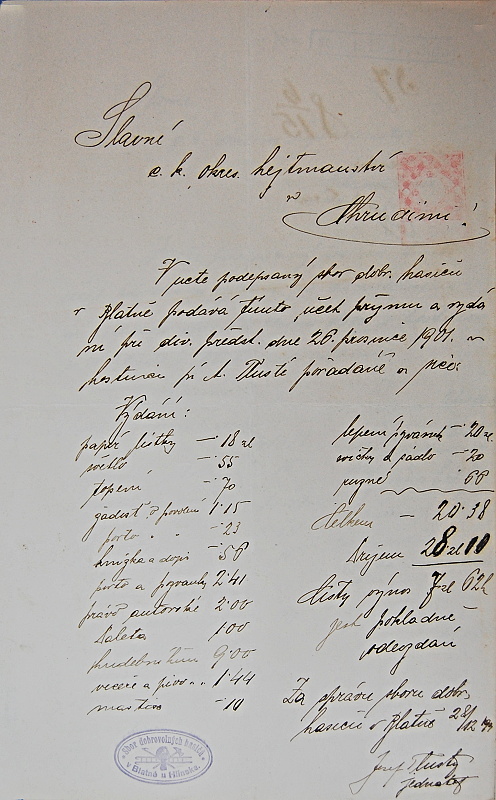 Slavné
c. k. okres. hejtmanství
v
Chrudimi!
V uctě podepsaný sbor dobr. hasičů
v Blatně podává tímto účet příjmu a vydá
ní při div. předst. dne 26. prosince 1901. v
hostinci pí A. Tlusté pořádané a sice:
Vydání:
papír lístky — ·18 zl
světlo — ·55
topení — ·70
žádost o povolení 1·15
porto " " — ·23
knížka a dopis — ·56
porto a pozvánky 2·41
právo autorské 2·00
1·00
hudebníkům 9·00
večeře a pivo " " 1·44
— ·10
lepení pozvánek — ·20 zl.
svíčky a sádlo — ·20
různé ·66
Celkem — 20·38
Příjem 28 zl 00
čistý výnos 7 zl 62 k
jest pokladně
odevzdán
Za správu sboru dobr.
hasičů v Blatně 28/12
Josef Tlustý
jednatel
Sbor dobrovolných hasičů
v Blatně u Hlinska.